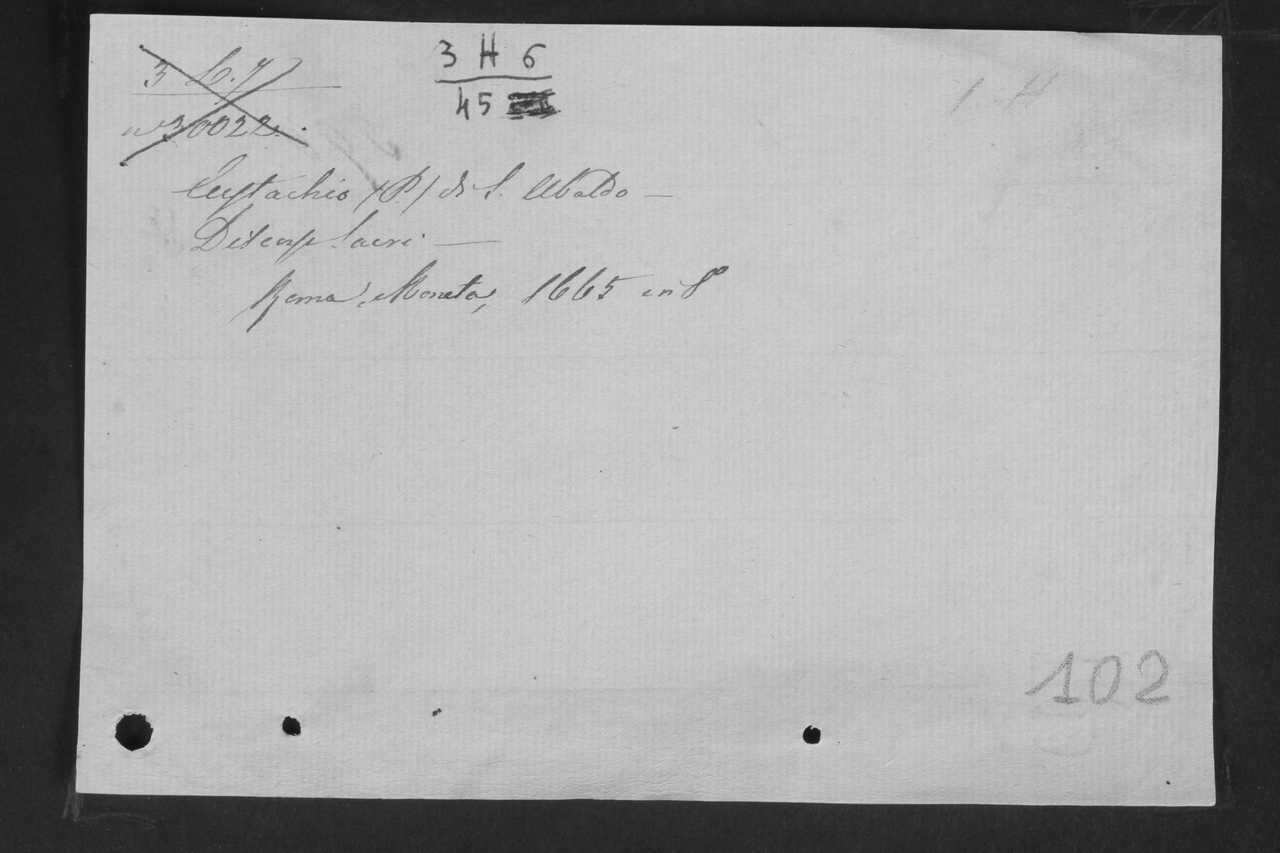 3 L. 7
nº 30022.
3 H 6
45
1 H
Eustachio (P) di S. Ubaldo —
Discorsi Sacri —
Roma, Moneta, 1665 in 8º
102